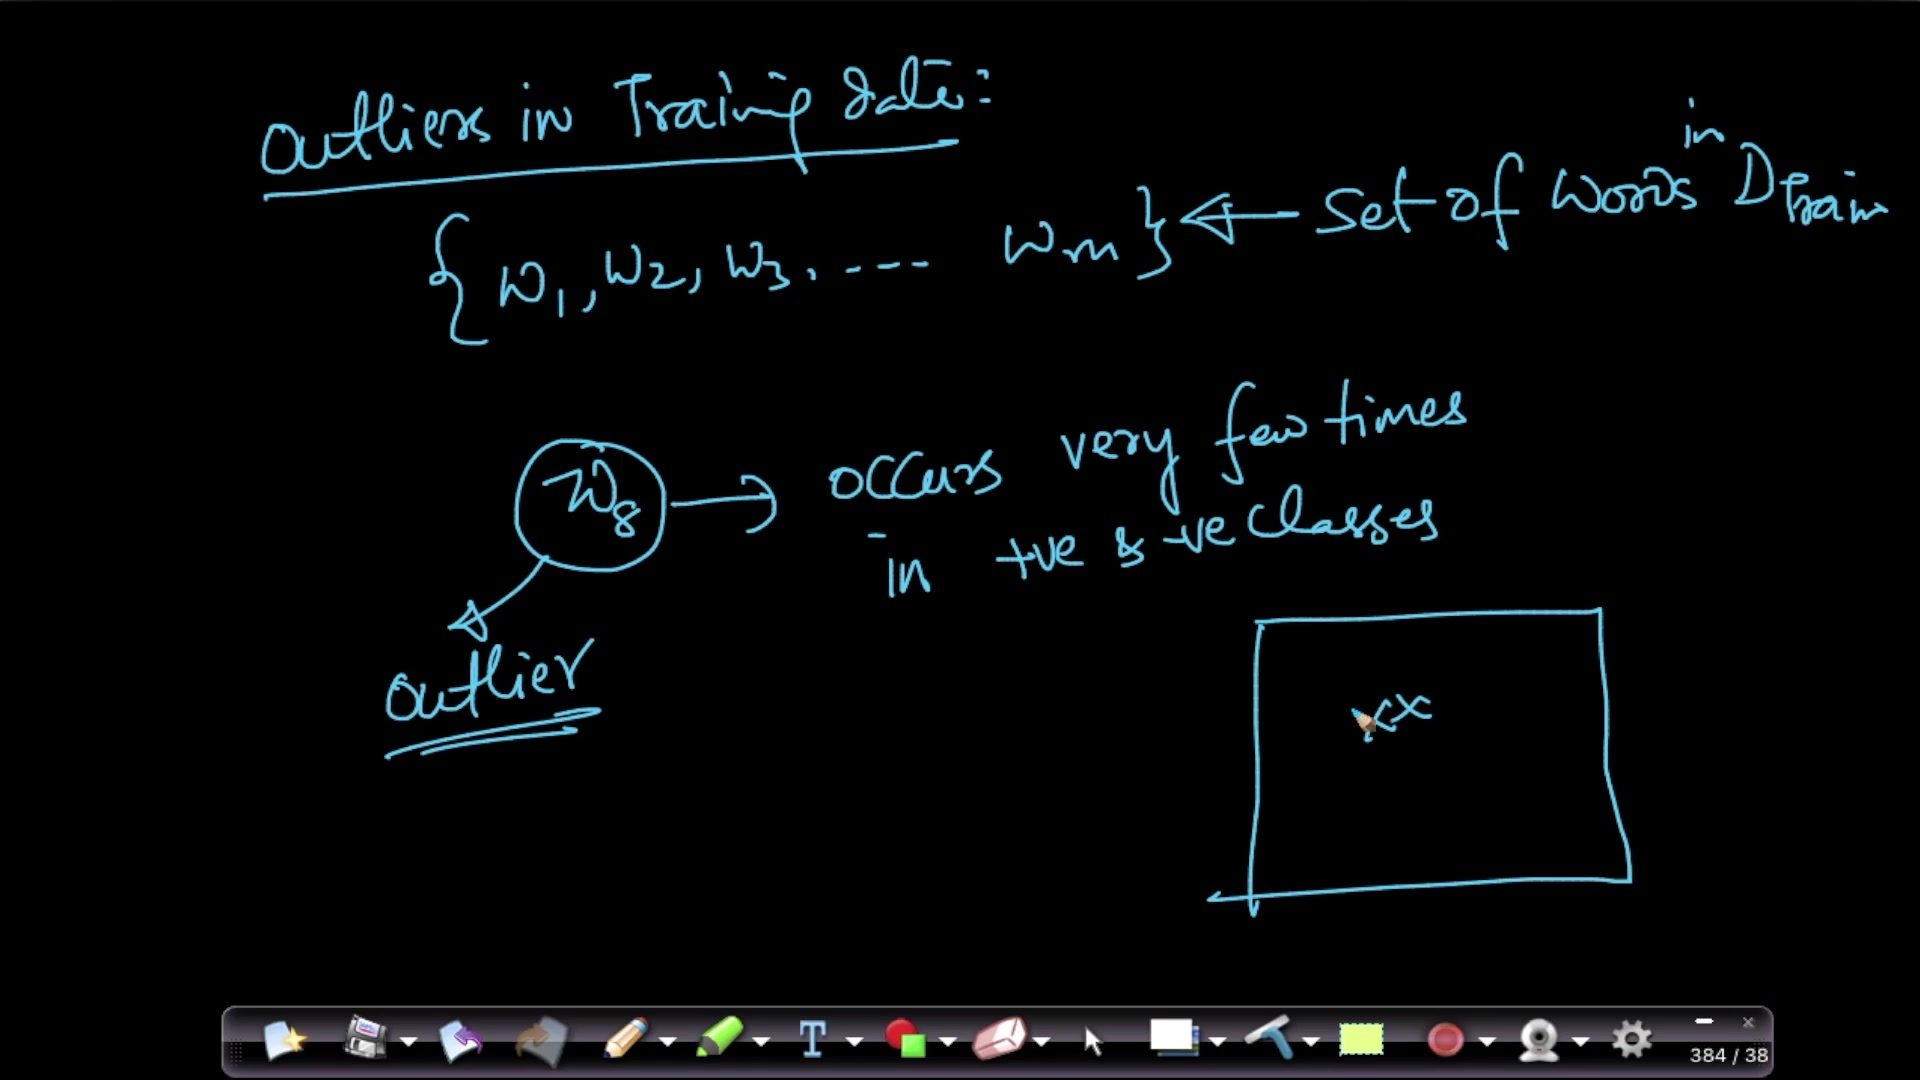 Outliers in Training data:
{w1, w2, w3, .---- wm} ← set of words in Dtrain
w8 → occurs very few times
in +ve & -ve classes
outlier
xx
T
384 / 38